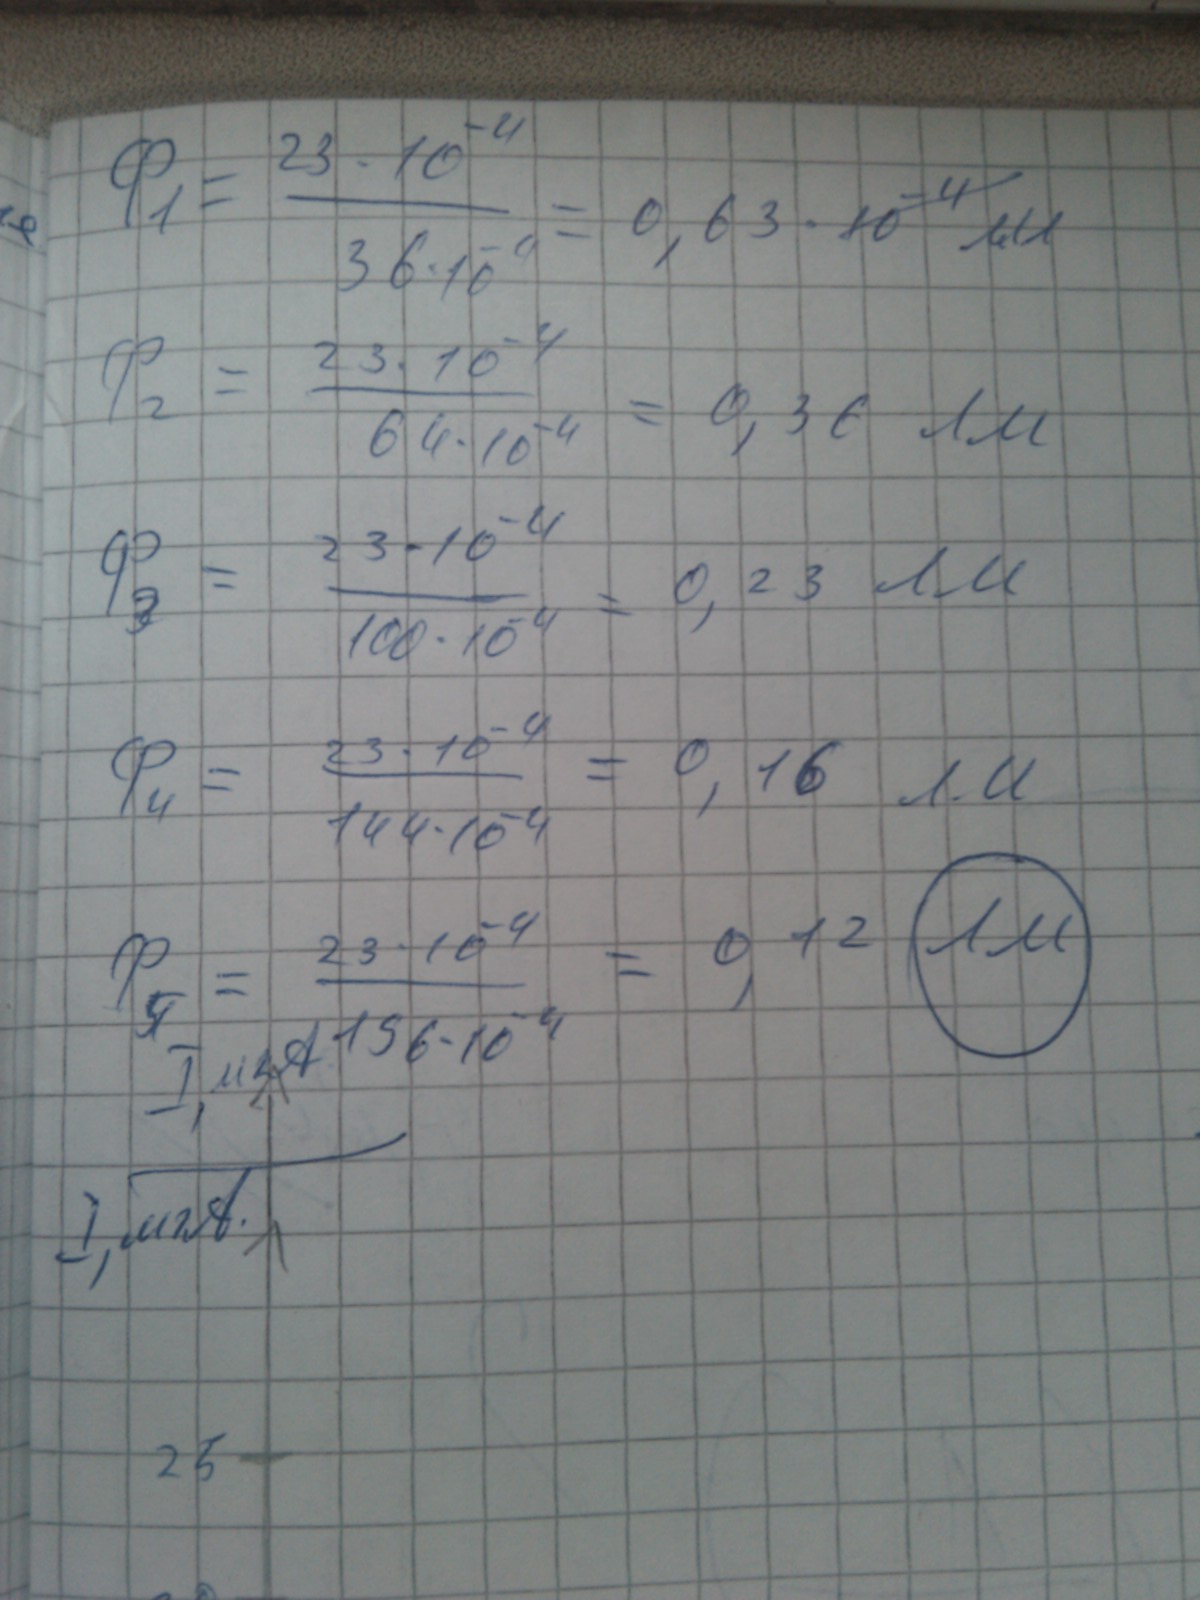 Ф₁ = 23 · 10⁻⁴ / 36 · 10⁻⁴ = 0,63 · 10⁻⁴ лм
Ф₂ = 23 · 10⁻⁴ / 64 · 10⁻⁴ = 0,36 лм
Ф₃ = 23 · 10⁻⁴ / 100 · 10⁻⁴ = 0,23 лм
Ф₄ = 23 · 10⁻⁴ / 144 · 10⁻⁴ = 0,16 лм
Ф₅ = 23 · 10⁻⁴ / 196 · 10⁻⁴ = 0,12 лм
I, мкА
I, мкА.
25